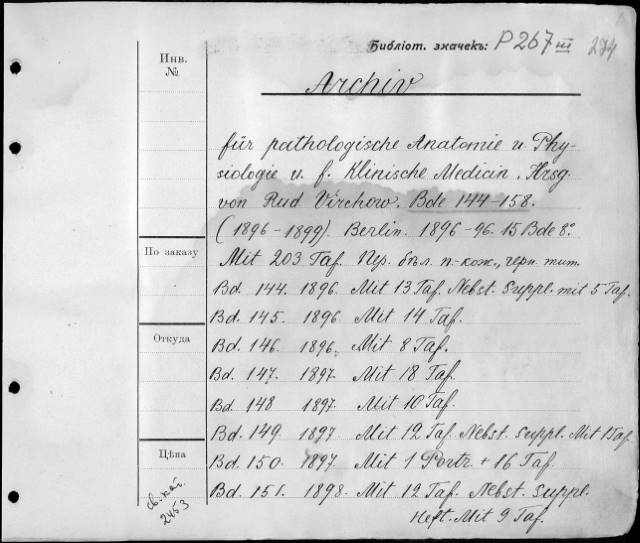 Библіот. значекъ: P 267 III 274
Инв.
№
Archiv
für pathologische Anatomie u. Phy-
siologie u. f. Klinische Medicin. Hrsg
von Rud Virchow. Bde 144-158.
(1896-1899). Berlin. 1896-96. 15 Bde 8º
По заказу
Mit 203 Taf. Пер. бѣл. п.-кож., черн. тит.
Bd. 144. 1896. Mit 13 Taf. Nebst. Suppl. mit 5 Taf.
Bd. 145. 1896 Mit 14 Taf.
Откуда
Bd. 146. 1896. Mit 8 Taf.
Bd. 147. 1897. Mit 18 Taf.
Bd. 148 1897. Mit 10 Taf.
Bd. 149. 1897 Mit 12 Taf. Nebst. Suppl. Mit 1 Taf.
Цѣна
Bd. 150. 1897. Mit 1 Portr. + 16 Taf.
Bd. 151. 1898. Mit 12 Taf. Nebst. Suppl.
Heft. Mit 9 Taf.
св. кат.
2453